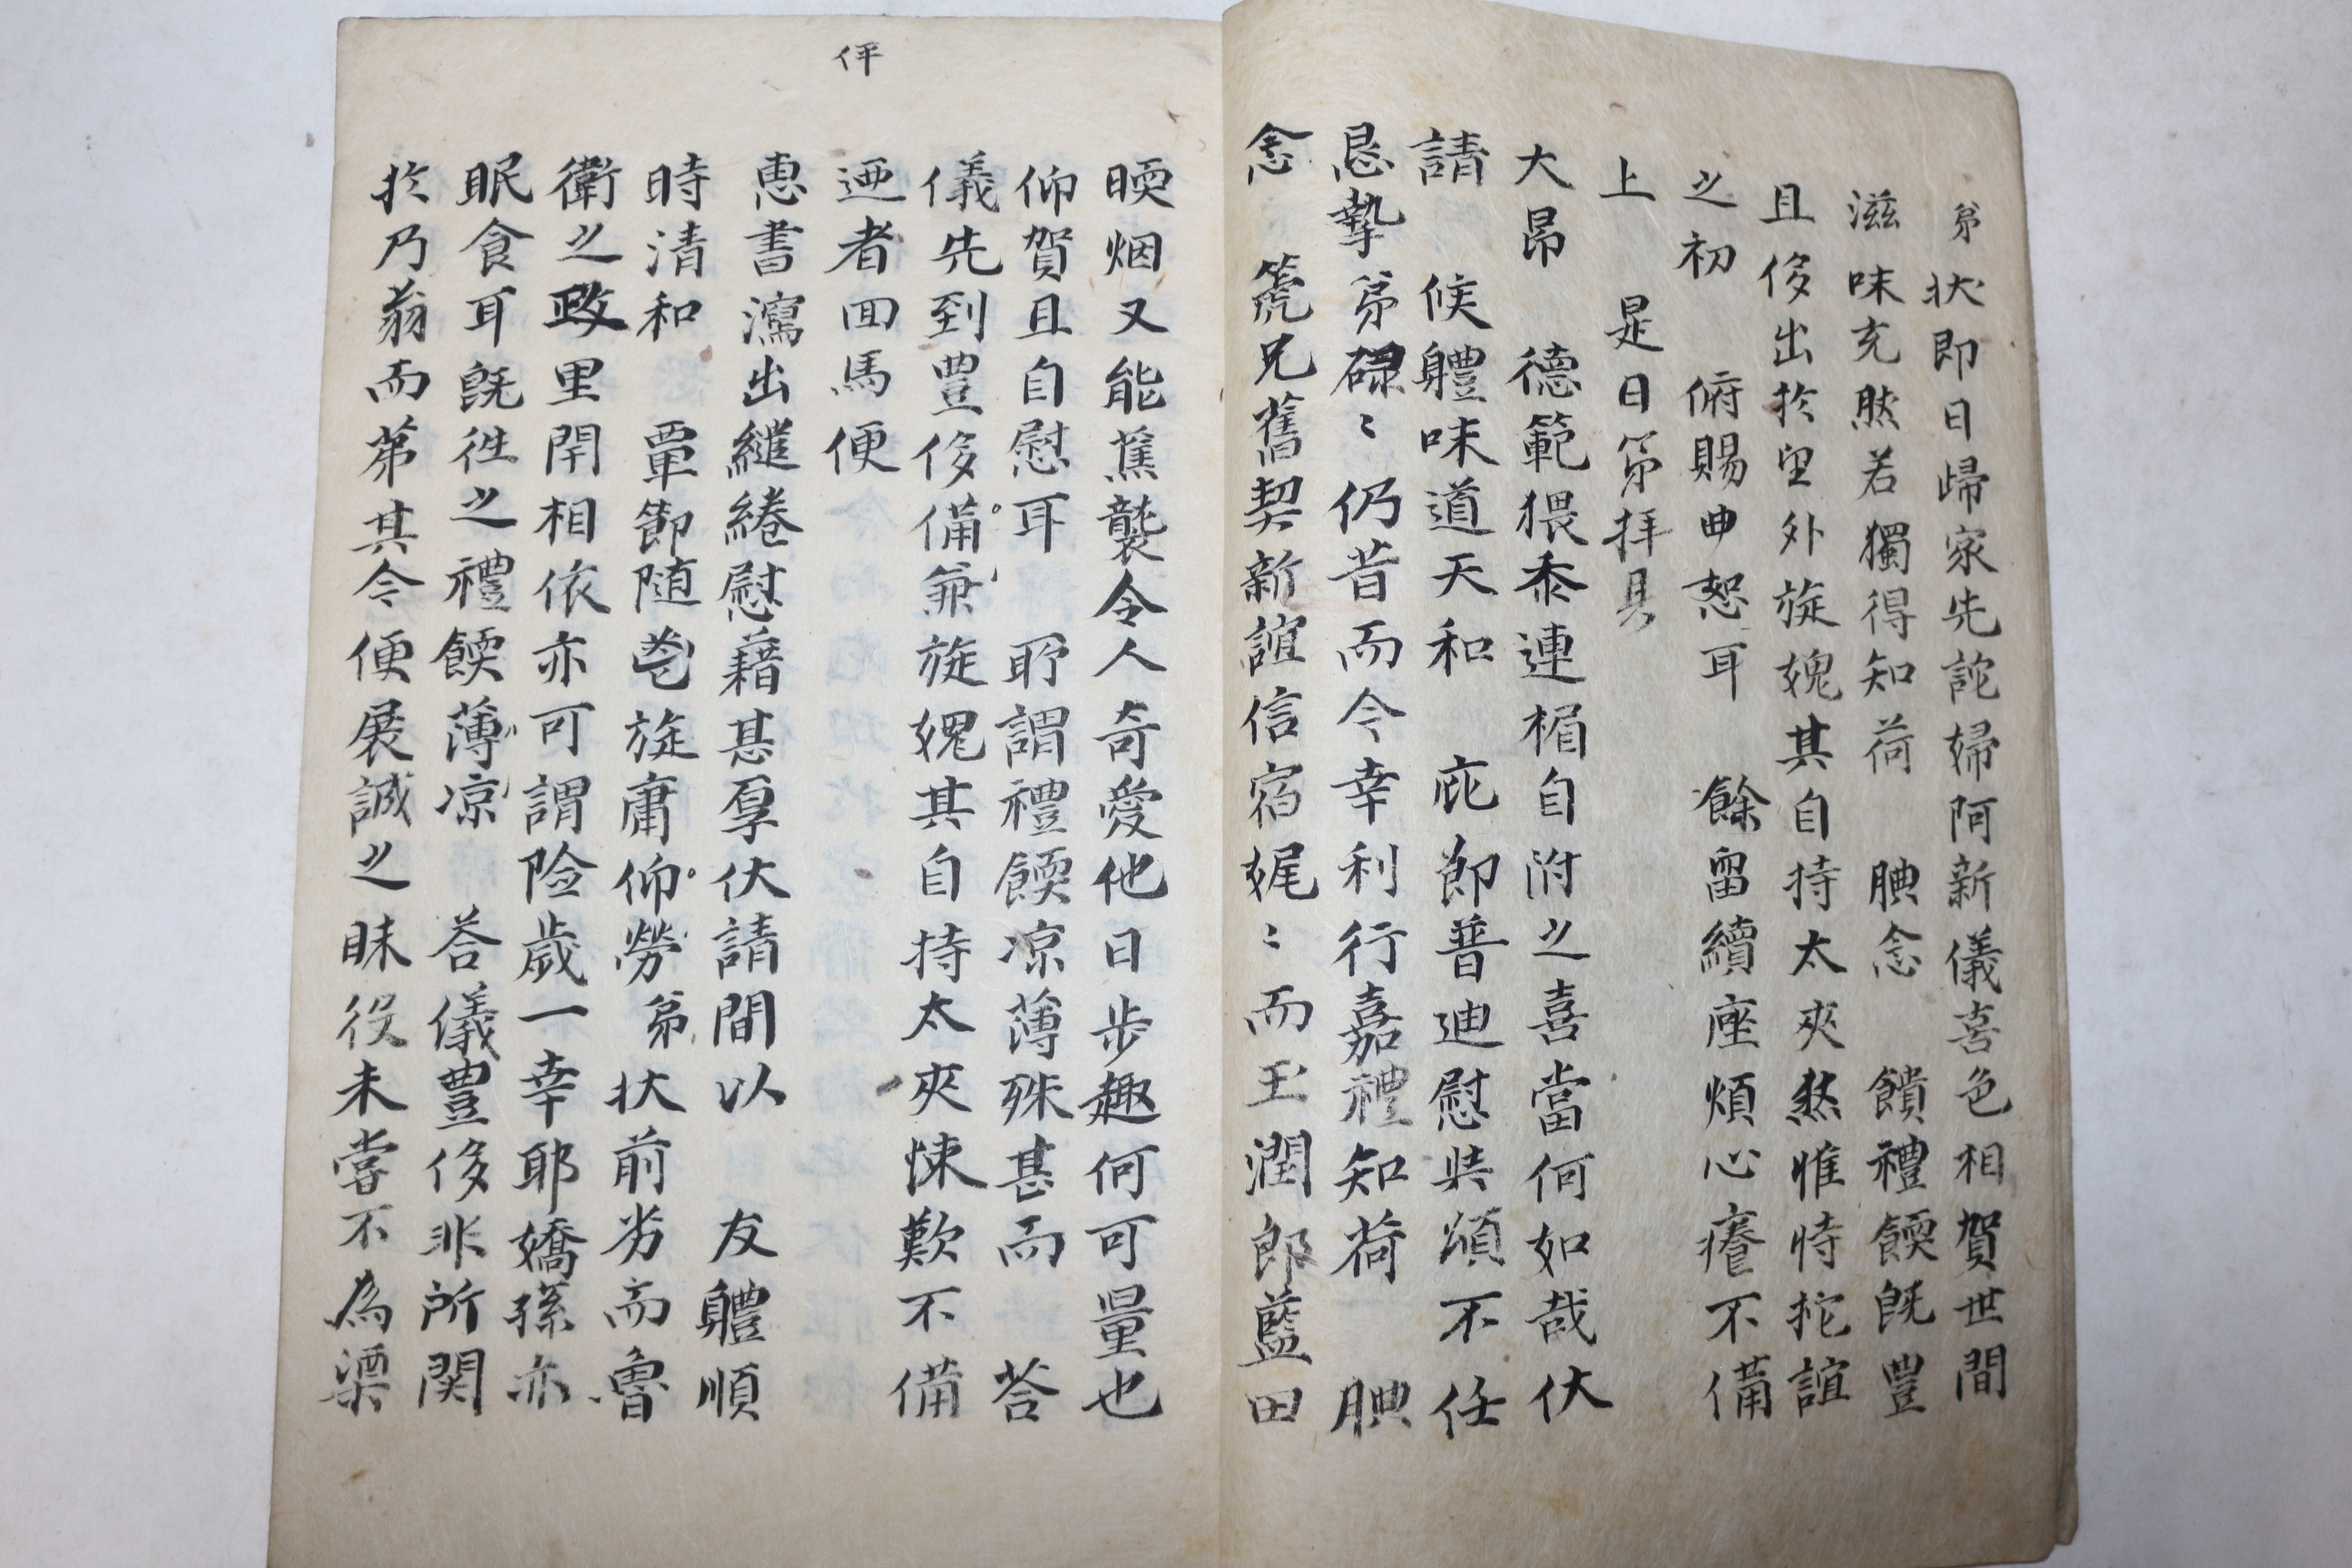 弟狀卽日歸家先詑婦阿新儀喜色相賀世間
滋味充然若獨得知荷 腆念 饋禮餪旣豐
且侈出於望外旋媿其自持太夾然惟恃挓誼
之初 俯賜曲恕耳 餘留續座煩心癢不備
上 是日弟拜具
大昴 德範猥忝連楣自附之喜當何如哉伏
請 候軆味道天和 庇節普迪慰與頌不任
恳摯弟碌〻仍昔而令幸利行嘉禮知荷 腆
念 箎兄舊契新誼信宿娓〻而玉潤郎藍田
暖烟又能薰襲令人奇愛他日步趣何可量也
仰賀且自慰耳 所謂禮餪凉薄殊甚而 荅
儀先到豊侈備兼旋媿其自持太夾悚歎不備
伻
迺者回馬便
惠書瀉出繾綣慰藉甚厚伏請間以 友軆順
時淸和 覃節随邕旋庸仰勞弟狀前劣而魯
衛之政里閈相依亦可謂险歲一幸耶嬌孫亦
眠食耳旣往之禮餪薄凉 荅儀豊侈非所関
於乃翁而第其令便展誠之昧役未嘗不為渠